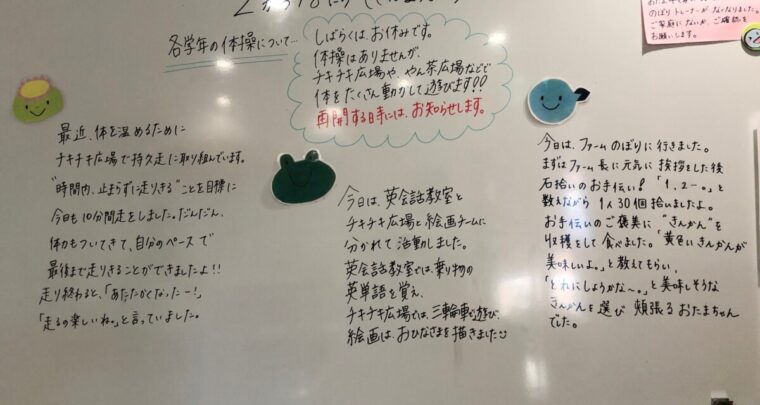 各学年の体操について…
しばらくは、お休みです。
体操はありませんが、
チキチキ広場や、やん茶広場などで
体をたくさん動かして遊びます!!
再開する日時には、お知らせします。
のぼりトレーナーが なくなりました。
ご家庭にないか、ご確認を
お願いします。
最近、体を温めるために
チキチキ広場で持久走に取り組んでいます。
"時間内、止まらずに走りきる"ことを目標に
今日も10分間走をしました。だんだん、
体力もついてきて、自分のペースで
最後まで走りきることができましたよ!!
走り終わると、「あたたかくなったー!」
「走るの楽しいね。」と言っていました。
今日は、英会話教室と
チキチキ広場と絵画チームに
分かれて活動しました。
英会話教室では、乗り物の
英単語を覚え、
チキチキ広場では、三輪車で遊び、
絵画は、おひなさまを描きました
今日は、ファームのぼりに行きました。
まずはファーム長に元気に挨拶をした後
石拾いのお手伝い!「1、2−。」と
数えながら 1人30個拾いましたよ。
お手伝いのご褒美に"きんかん"を
収穫をして食べました。「黄色いきんかんが
美味しいよ。」と教えてもらい、
「どれにしようかな〜。」と美味しそうな
きんかんを選び 頬張るおたまちゃん
でした。